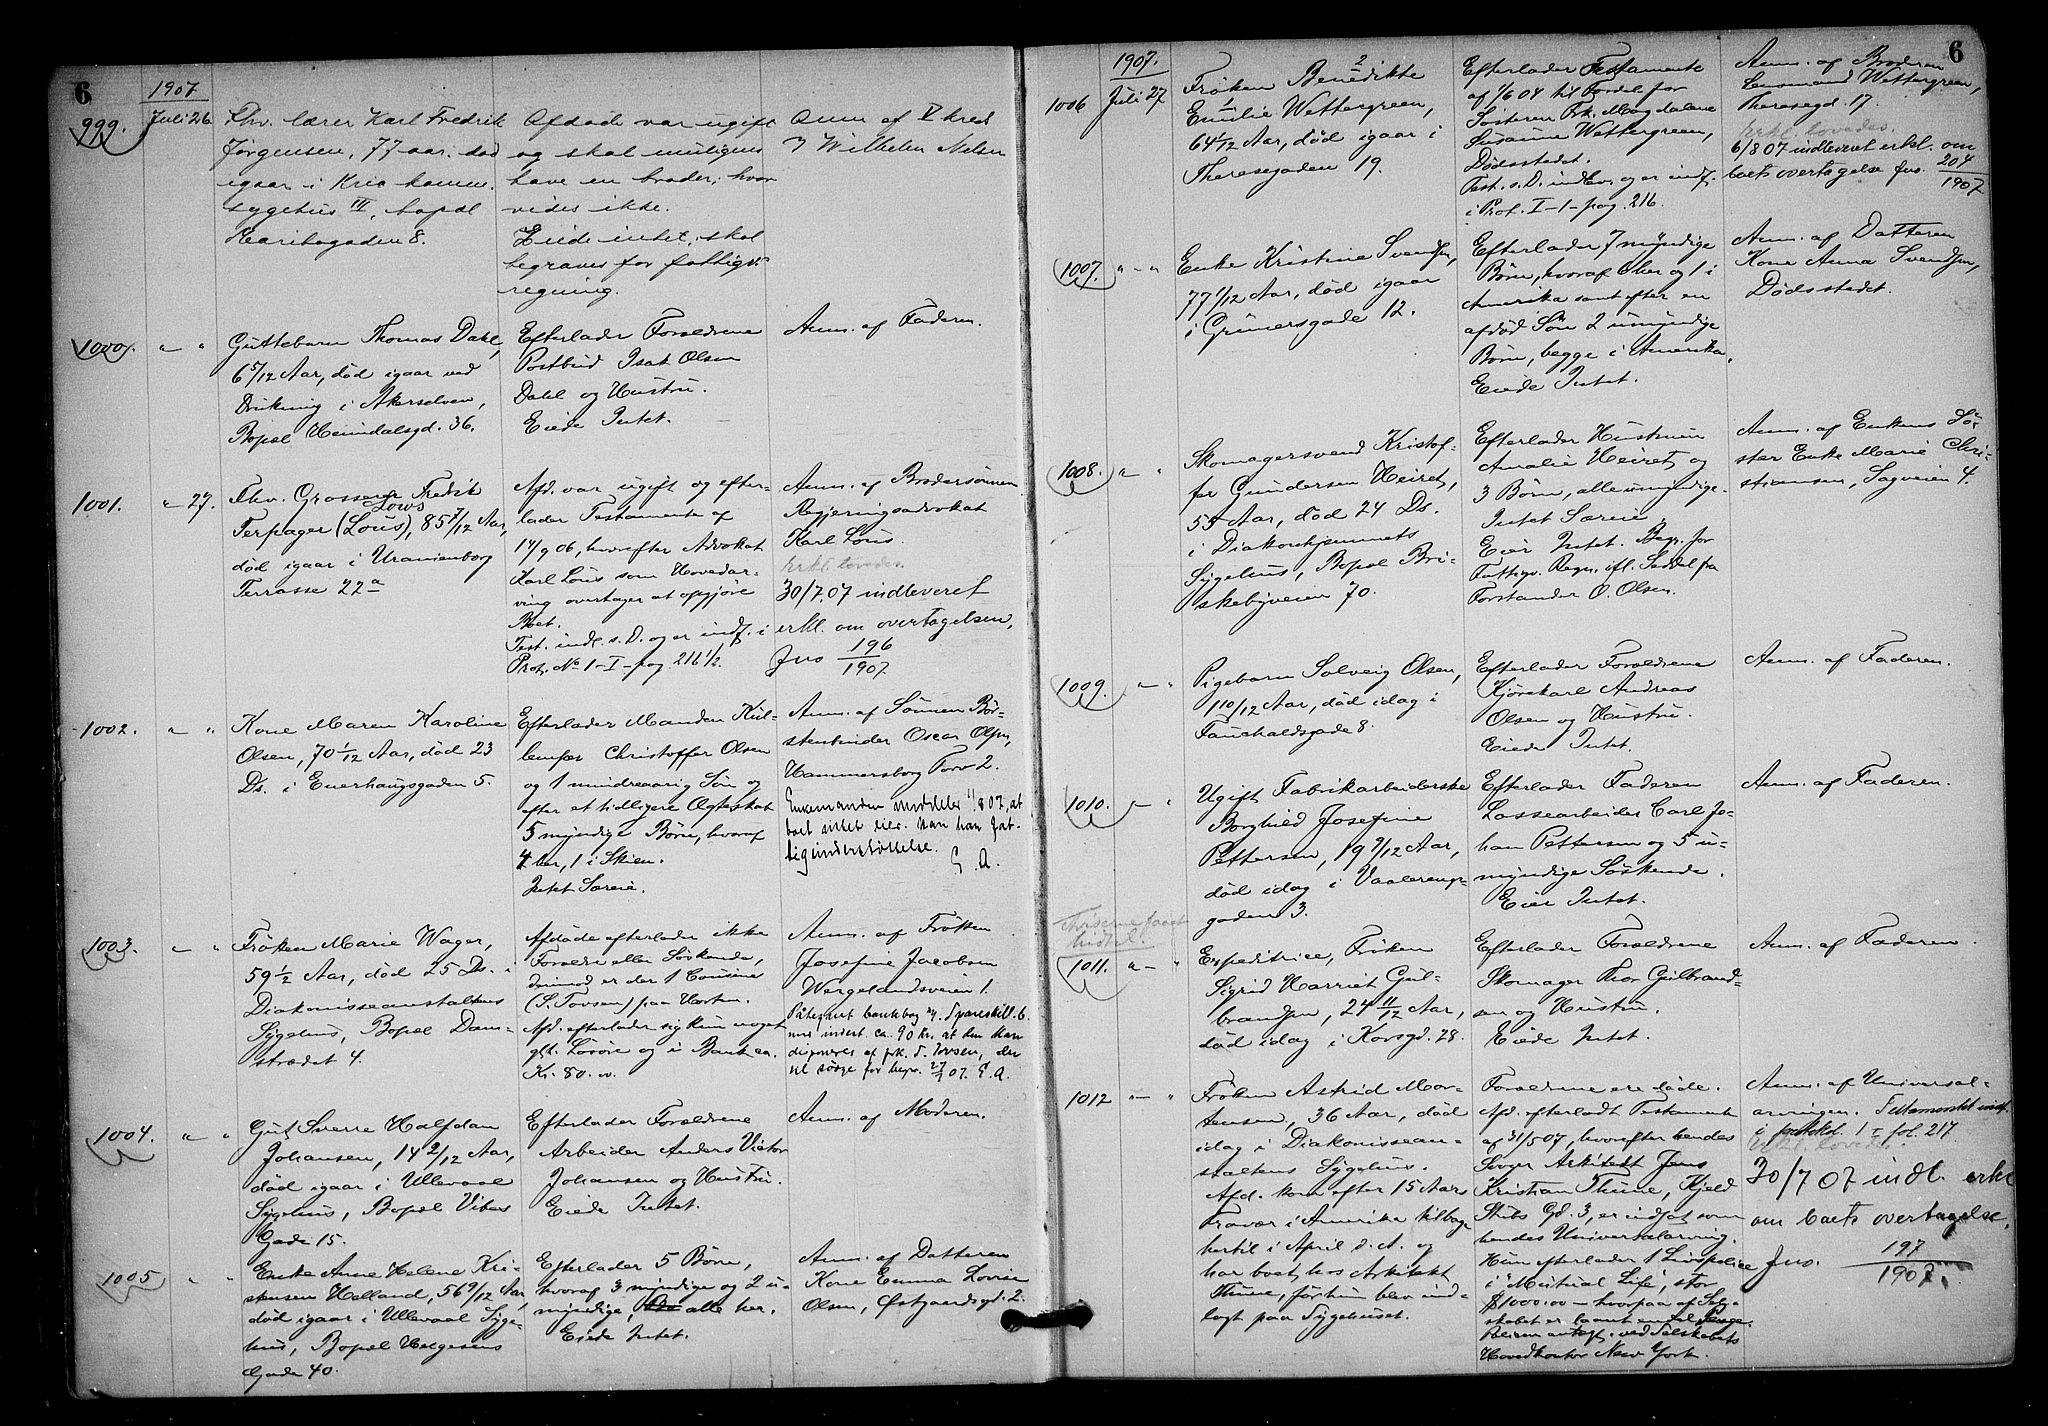 6
1907
999.
Juli 26
Fhv. lærer Karl Fredrik
Jørgensen, 77 aar. død
igaar i Kria komm.
sygehus III, bopæl
Maritagaden 8.
Afdøde var ugift
og skal muligens
have en broder; hvor
vides ikke.
Eiede intet; skal
begraves for fattigv.
regning.
Anm af V kred
v Wilhelm Nilsen
1000.
" — "
Guttebarn Thomas Dahl,
6 5/12 Aar, død igaar ved
Drukning i Akerselven,
Bopæl Heimdalsgd. 36.
Efterlader Forældrene
Postbud Isak Olsen
Dahl og Hustru.
Eiede Intet.
Anm. af Faderen.
1001.
" — 27.
Fhv. Grosserer Fredrik
Lows
Terpager (Lous), 85 7/12 Aar,
død igaar i Uranienborg
Terrasse 22a
Afd. var ugift og efter-
lader Testamente af
14/9 06, hvorefter Advokat
Karl Lous som Hovedar-
ving overtager at opgjøre
Boet.
Test. indl. s. D. og er indf. i
Prot. No 1-I-pag 216 1/2.
Anm. af Brodersønnen
Regjeringsadvokat
Karl Lous.
Erkl. lovedes.
30/7.07 indleveret
erkl. om overtagelsen,
Jns 196/1907.
1002.
" — "
Kone Maren Karoline
Olsen, 70 1/12 Aar, død 23
Ds. i Enerhaugsgaden 5.
Efterlader Manden Kul-
lemper Christoffer Olsen
og 1 mindreaarig Søn og
efter et tidligere Ægteskab
5 myndige Børn, hvoraf
4 her, 1 i Skien.
Intet Særeie.
Anm. af Sønnen Bør-
stenbinder Oscar Olsen,
Hammersborg Torv 2.
Enkemanden meddeler 1/8 07, at
boet intet eier. Han har fat-
tigunderstøttelse.
E. A.
1003.
" — "
Frøken Marie Wager,
59 1/2 Aar, død 25 Ds. i
Diakonisseanstaltens
Sygehus, Bopæl Dam-
strædet 4.
Afdøde efterlader ikke
Forældre eller Søskende,
derimod er der 1 Cousine
(S. Tovsen) paa Horten.
Afd. efterlader sig kun noget
glt. Løsøre og i Bank ca.
Kr. 80.00.
Anm. af Frøken
Josefine Jacobsen
Wergelandsveien 1.
Påtegnet bankbog
indest. ca. 90 kr. at den kan
disponeres af frk. S. Tovsen, der
vil sørge for begr. 27/7 07. E. A.
1004.
" — "
Gut Sverre Halfdan
Johansen, 14 2/12 Aar,
død igaar i Ullevaal
Sygehus, Bopæl Vibes
Gade 15.
Efterlader Forældrene
Arbeider Anders Victor
Johansen og Hustru.
Eiede Intet.
Anm. af Moderen.
1005
" "
Enke Anne Helene Kri-
stensen Helland, 56 9/12 Aar,
død igaar i Ullevaal Syge-
hus, Bopæl Helgesens
Gade 40.
Efterlader 5 Børn,
hvoraf 3 myndige og 2 u-
myndige, alle her.
Eiede Intet.
Anm. af Datteren
Kone Emma Lovise
Olsen, Østgaardsgd. 2.
6
1907.
1006
Juli 27
Frøken Benedikte
Emilie Wettergreen,
64 1/12 Aar, død igaar i
Theresegaden 19.
Efterlader Testamente
af 1/6 04 til Fordel for
Søsteren Frk. Magdalene
Susanne Wettergreen,
Dødsstedet.
Test. s. D. indlev. og er indf.
i Prot. I-1-pag. 216.
Anm. af Broderen
Lensmand Wettergreen,
Theresegd. 17.
Erkl. lovedes.
6/8 07 indleveret erkl. om
boets overtagelse Jns. 204/1907
1007.
" — "
Enke Kristine Svendsen,
77 1/12 Aar, død igaar
i Grünersgade 12.
Efterlader 7 myndige
Børn, hvoraf 6 her og 1 i
Amerika samt efter en
afdød Søn 2 umyndige
Børn, begge i Amerika.
Eiede Intet.
Anm. af Datteren
Kone Anna Svendsen,
Dødsstedet.
1008.
" — "
Skomagersvend Kristof-
fer Gundersen Heiret,
55 Aar, død 24 Ds.
i Diakonhjemmets
Sygehus, Bopæl Bri-
skebyveien 70.
Efterlader Hustruen
Amalie Heiret og
3 Børn, alle umyndige.
Intet Særeie.
Eier Intet. Begr. for
Fattigv. Regn. ifl. Seddel fra
Forstander O. Olsen.
Anm. af Enkens Sø-
ster Enke Marie Chri-
stiansen, Sagveien 4.
1009.
" — "
Pigebarn Solveig Olsen,
1 10/12 Aar, død idag i
Fauchaldsgade 8.
Efterlader Forældrene
Kjørekarl Andreas
Olsen og Hustru.
Eiede Intet.
Anm. af Faderen.
1010.
" — "
Ugift Fabrikarbeiderske
Borghild Josefine
Pettersen, 19 9/12 Aar,
død idag i Vaalereng-
gaden 3.
Efterlader Faderen
Lossearbeider Carl Jo-
han Pettersen og 5 u-
myndige Søskende.
Eier Intet.
Anm. af Faderen.
1011.
" — "
Expeditrice, Frøken
Sigrid Harriet Gul-
brandsen, 24 11/12 Aar,
død idag i Korsgd. 28.
Efterlader Forældrene
Skomager Thor Gulbrand-
sen og Hustru.
Eiede Intet.
Anm. af Faderen.
1012
" — "
Frøken Astrid Mor-
tensen, 36 Aar, død
idag i Diakonissean-
staltens Sygehus.
Afd. kom efter 15 Aars
Fravær i Amerika tilbage
hertil i April d. A. og
har boet hos Arkitekt
Thune, før hun blev ind-
lagt paa Sygehuset.
Forældrene ere døde.
Afd. efterladt Testamente
af 31/5 07, hvorefter hendes
Svoger Arkitekt Jens
Kristian Thune, Kjeld
Stubs Gd. 3, er indsat som
hendes Universalarving.
Hun efterlader 1 Livspolice
i "Mutual Life", stor
$ 1000.00 — hvorpaa af Sel-
skabet er laant en Del Penge.
Policen antagl. ved Selskabets
Hovedkontor New York.
Anm. af Universal-
arvingen. Testamentet indf.
i protokol 1 I fol. 217
Erkl. lovedes.
30/7 07 indl. erkl
om boets overtagelse,
Jns. 197/1907.